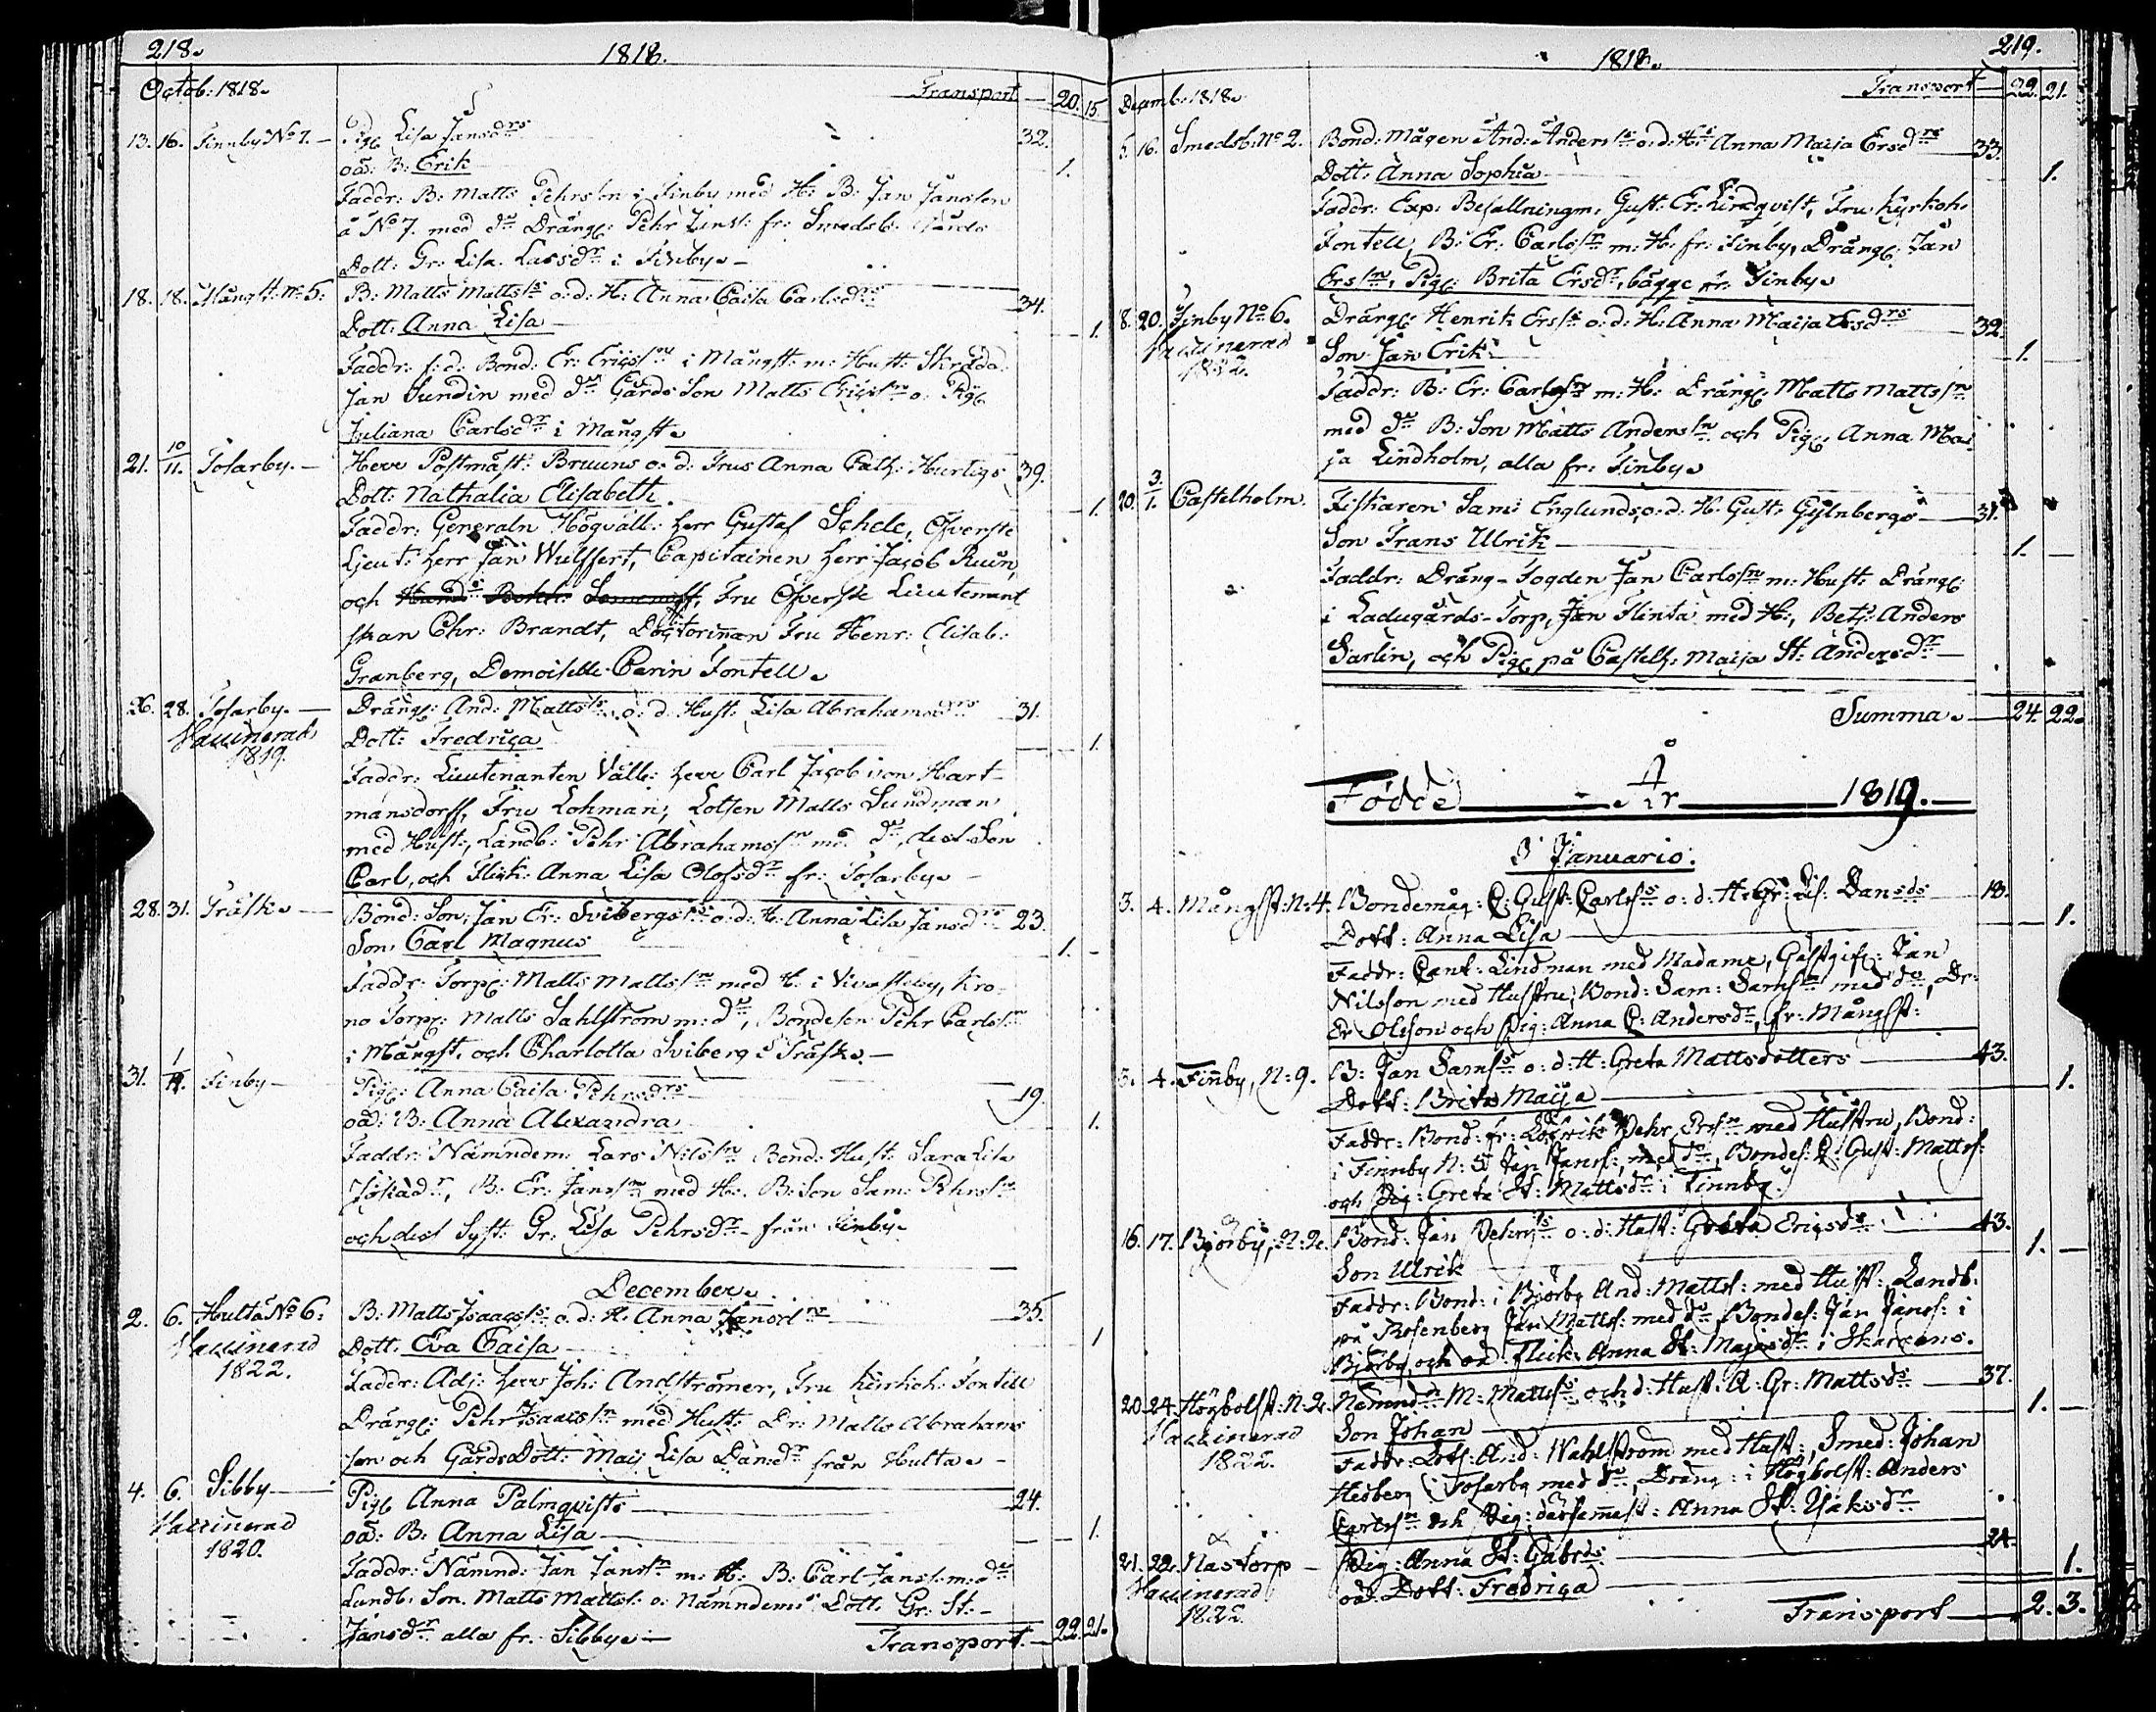 218.
1818.
Octob: 1818.
Transport — 20. 15
13. 16. Finnby No 7. — Pig: Lisa Jansdrs 32.
oä: B: Erik 1.
Faddr: B: Matts Pehrsson i Finby med H: B: Jan Jansson
å No 7. med do Dräng: Pehr fr: Smedsb. Gårds
Dott: Gr: Lisa Larsdr i Finby. —
18. 18. Mångst: No 5: B: Matts Mattss o: d: H: Anna Caisa Carlsdrs 34.
Dott: Anna Lisa 1.
Faddr: f: d: Bond: Er: Ericssn i Mångst: m: Hust: Skrädd.
Jan Sundin med do Gårds Son Matts Ericssn o: Pig:
Juliana Carlsdr i Mångst.
21. 10/11. Tosarby. — Herr Postmäst: Bruuns o: d: Frus Anna Cath: Hurtigs 39.
Dott: Nathalia Elisabeth. 1
Faddr: Generaln Högväll: Herr Gustaf Schele, Öfverste
Ljeut: Herr Jan Wulffert, Capitainen Herr Jacob Ruun,
och Fru Öfverste Lieutenant
skan Chr: Brandt, Doctorinnan Fru Henr: Elisab:
Granberg, Demoiselle Carin Fontell.
26. 28. Tosarby. — Dräng: And: Mattss o: d: Hust: Lisa Abrahamsdrs 31.
Vaccinerad Dott: Fredrica 1.
1819.
Faddr: Lieutenanten Välb: Herr Carl Jacob von Hart-
mansdorff, Fru Lohman, Lotsen Matts Sundman
med Hust:, Landb: Pehr Abrahamssn md do, dess Son
Carl, och Flick: Anna Lisa Olofsdr fr: Tosarby. —
28. 31. Träsk. — Bond: Son, Jan Er: Svibergs o: d: H: Anna Lisa Jansdrs 23.
Son Carl Magnus 1. —
Faddr: Torp: Matts Mattssn med H: i Vivasteby, Kro-
no Torp: Matts Sahlström m: do, Bondeson Pehr Carlssn
i Mångst, och Charlotta Sviberg i Träsk. —
31. 1/11. Finby — Pig: Anna Caisa Pehrsdrs 19.
oä: B: Anna Alexandra 1.
Faddr: Nämndem: Lars Nilssn Bond: Hust: Sara Lisa
B: Er: Janssn med H: B: Son Sam: Pehrssn
och dess Syst: Gr: Lisa Pehrsdr från Finby.
December.
2. 6. Hulta No 6: B: Matts Isaacss o: d: H: Anna Jansdrs 35.
Vaccinerad Dott: Eva Caisa 1
1822.
Faddr: Adj: Herr Joh: Andströmer, Fru Kyrkoh: Fontell
Dräng: Pehr Isaacssn med Hust: Dr: Matts Abrahams
son och Gårds Dott: Maij Lisa Dansdr från Hulta. —
4. 6. Sibby — Pig: Anna Palmqvists 24.
Vaccinerad oä: B: Anna Lisa 1.
1820.
Faddr: Nämnd: Jan Janssn m: H: B: Carl Janss: m: do
Landb: Son Matts Mattss: o: Nämndems Dott: Gr: St: —
Jansdr alla fr: Sibby. — Transport. — 22. 21.
219.
1818.
Decemb: 1818. Transport — 22. 21.
5. 16. Smedsb: No 2. Bond: Mågen And: Anderss o: d: H: Anna Maija Ersdrs 33.
Dott: Anna Sophia 1.
Faddr: Exp: Befallningm: Gust: Er: Lindqvist, Fru Kyrkoh:
Fontell, B: Er: Carlssn m: H: fr: Finby, Dräng: Jan
Erssn, Pig: Brita Ersdr, bägge fr: Finby.
8. 20. Finby No 6. Dräng: Henrik Erss o: d: H: Anna Maija Ersdrs 32.
Vaccinerad Son Jan Erik 1. —
1822.
Faddr: B: Er: Carlssn m: H: Dräng: Matts Mattssn
med do B: Son Matts Anderssn och Pig: Anna Mai-
ja Lindholm, alla fr: Finby.
20. 3/1. Castelholm. Fiskaren Sam: Englunds, o: d: H: Gust: Gyllnbergs 31.
Son Frans Ulrik — 1. —
Faddr: Dräng-Fogden Jan Carlssn m: Hust: Dräng:
i Ladugårds-Torp, Jan Flinta med H:, Betj: Anders
Sarlin, och Pig: på Castelh: Maija St: Andersdr —
Summa. — 24. 22.
Födde År 1819.
I Januario.
3. 4. Mångst: N: 4. Bondemåg: C: Gust: Carlss o: d: H: Gr: Lis: Dansds 18.
Dott: Anna Lisa — 1.
Faddr: Cant: Lindman med Madame, Gästgif: Jan
Nilsson med Hustru, Bond: Sam: Samssn med do, Dr:
Er: Olsson och Pig: Anna C: Andersdr, fr: Mångst:
3. 4. Finnby, N: 9. B: Jan Samss o: d: H: Greta Mattsdotters — 43.
Dott: Brita Maija 1.
Faddr: Bond: fr: Löfvik Pehr Erssn med Hustru, Bond:
i Finnby N: 5 Jan Janss:, med do, Bondes: C: Gust: Mattss:
och Pig: Greta St: Mattsdr i Finnby.
16. 17. Björby, N: 2. Bond: Jan Pehrss o: d: Hust: Greta Ericsds 43.
Son Ulrik 1. —
Faddr: Bond: i Björby And: Mattss: med Hust: Landb:
på Rosenberg Jan Mattss: med do Bondes: Jan Janss: i
Björby, och oä: Flick: Anna St: Majasdr i Skarpans.
20. 24. Högbolst: N: 2. Nämndm M: Mattss och d: Hust: A: Gr: Mattsds 37.
Vaccinerad Son Johan 1. —
1822.
Faddr: Lots: And: Wahlström med Hust:, Smed: Johan
Hedberg i Tosarby med do, Dräng: i Högbolst: Anders
Carlssn och Pig: därsemast: Anna St: Isaksdr
21. 22. Nastorp — Pig: Anna St: Gabrds 24.
Vaccinerad oä. Dott: Fredrica 1.
1822.
Transport — 2. 3.